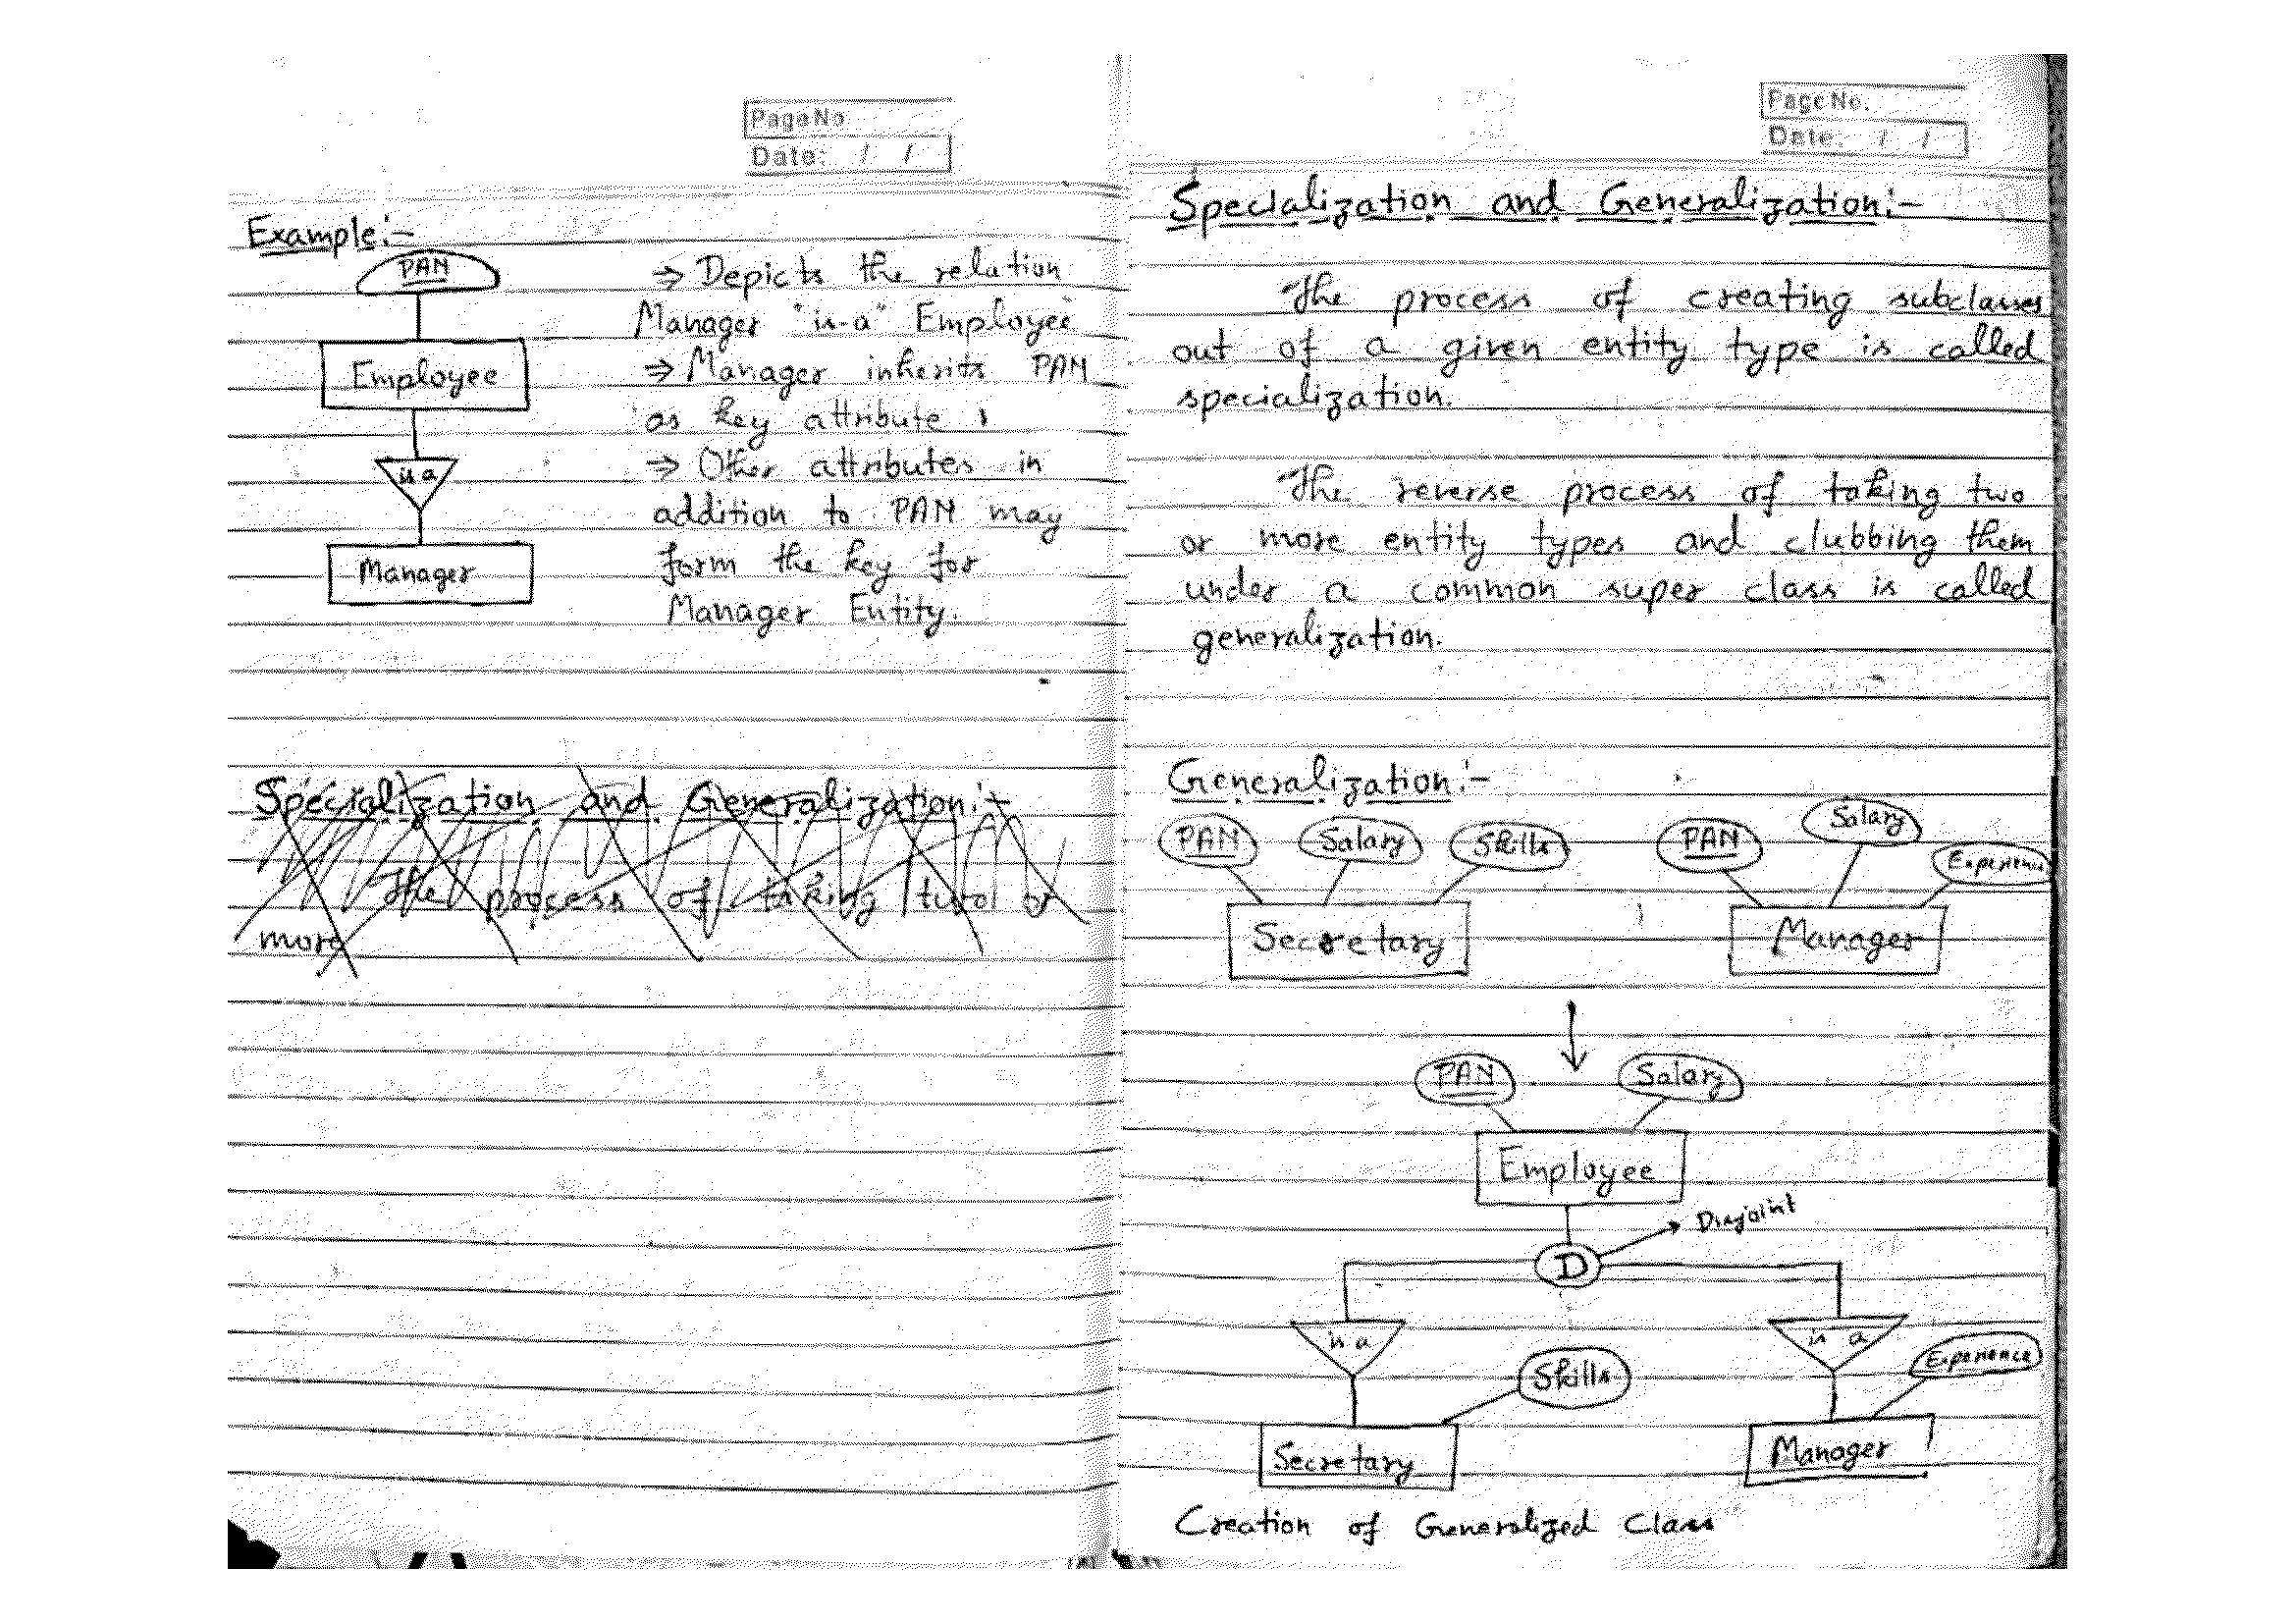 PageNo
Date: / /
Example:-
PAN
Employee
is a
Manager
⇒ Depicts the relation
Manager "is-a" Employee"
⇒ Manager inherits PAN
as key attribute
⇒ Other attributes in
addition to PAN may
form the key for
Manager Entity.
Specialization and Generalization:-
The process of taking two or
more
Page No.
Date: / /
Specialization and Generalization:-
The process of creating subclasses
out of a given entity type is called
specialization.
The reverse process of taking two
or more entity types and clubbing them
under a common super class is called
generalization.
Generalization:-
PAN Salary Skills PAN Salary Experience
Secretary Manager
PAN Salary
Employee
Disjoint
D
is a is a
Skills Experience
Secretary Manager
Creation of Generalized Class